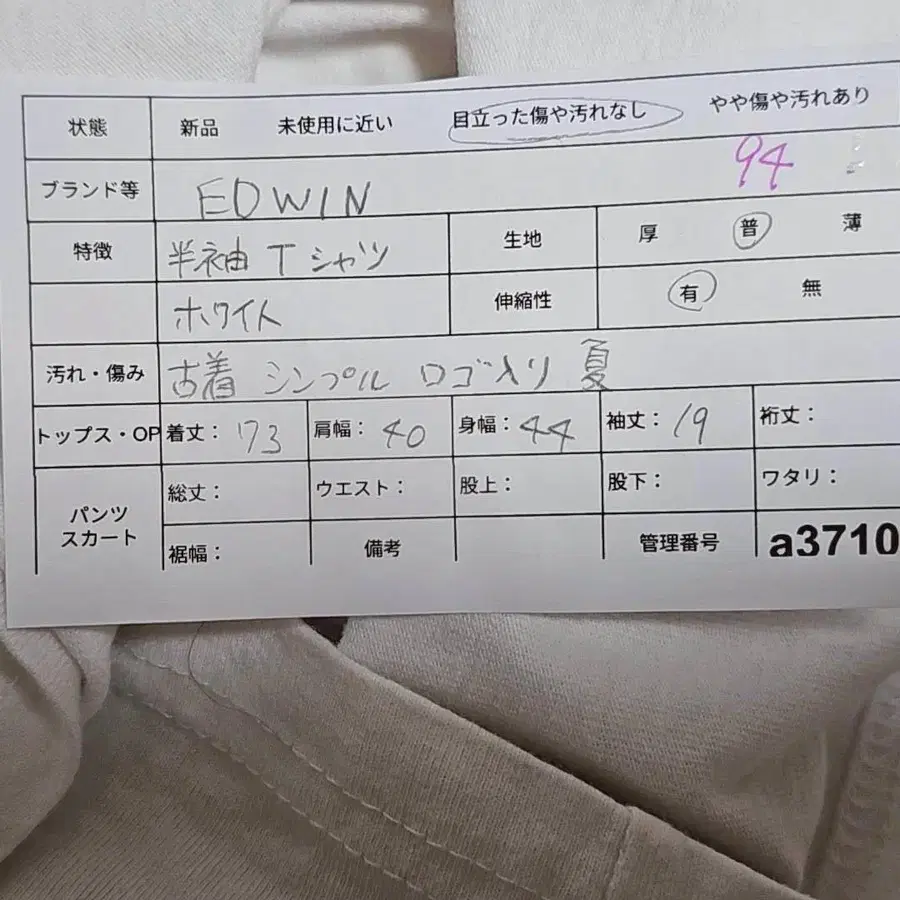 状態 新品 未使用に近い 目立った傷や汚れなし やや傷や汚れあり
94
ブランド等 EDWIN
特徴 半袖 Tシャツ 生地 厚 普 薄
ホワイト 伸縮性 有 無
汚れ・傷み 古着 シンプル ロゴ入り 夏
トップス・OP 着丈: 73 肩幅: 40 身幅: 44 袖丈: 19 裄丈:
パンツ スカート 総丈: ウエスト: 股上: 股下: ワタリ:
裾幅: 備考 管理番号 a3710